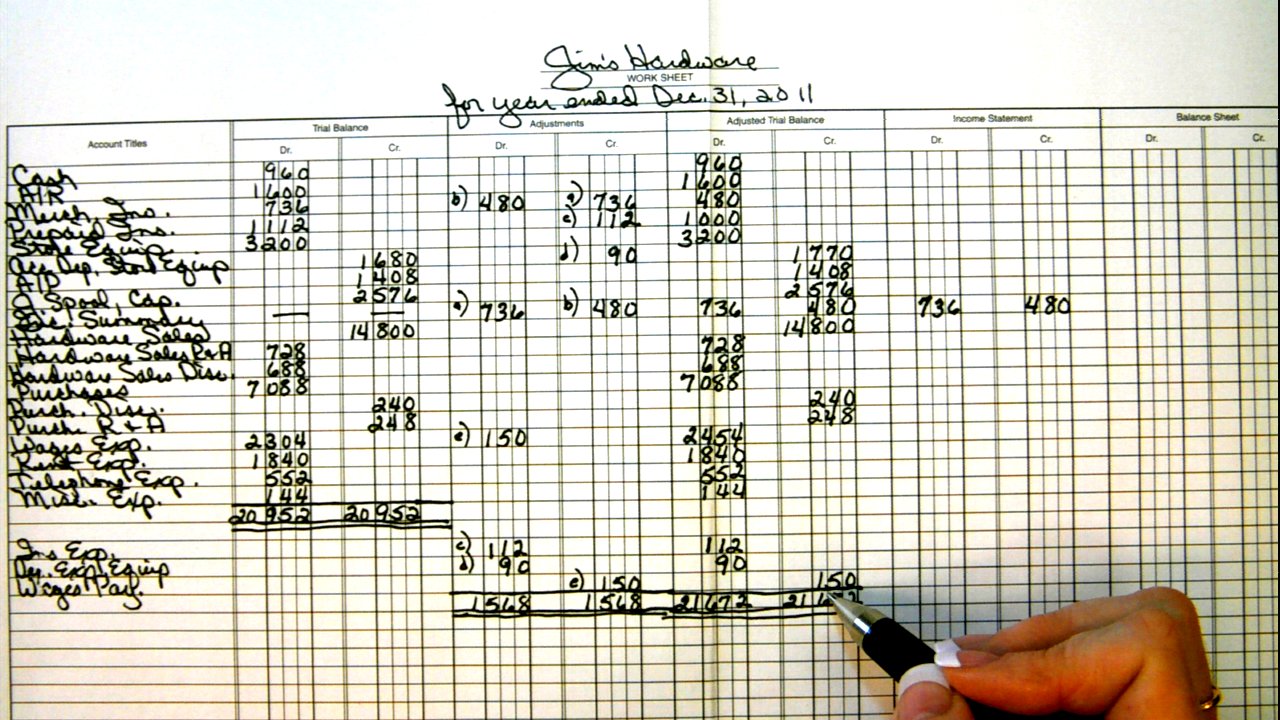 Jim's Hardware
WORK SHEET
for year ended Dec. 31, 2011
Account Titles Trial Balance Adjustments Adjusted Trial Balance Income Statement Balance Sheet
Dr. Cr. Dr. Cr. Dr. Cr. Dr. Cr. Dr. Cr.
Cash 960 960
A/R 1600 1600
Merch. Ins. 736 b) 480 a) 736 480
Prepaid Ins. 1112 c) 112 1000
Store Equip. 3200 3200
Acc. Dep. Store Equip 1680 d) 90 1770
A/P 1408 1408
J. Spool, Cap. 2576 2576
Inc. Summary — — a) 736 b) 480 736 480 736 480
Hardware Sales 14800 14800
Hardware Sales R&A 728 728
Hardware Sales Disc. 688 688
Purchases 7088 7088
Purch. Disc. 240 240
Purch. R & A 248 248
Wages Exp. 2304 e) 150 2454
Rent Exp. 1840 1840
Telephone Exp. 552 552
Misc. Exp. 144 144
20952 20952
Ins Exp. c) 112 112
Dep. Exp Equip d) 90 90
Wages Pay. e) 150 150
1568 1568 21672